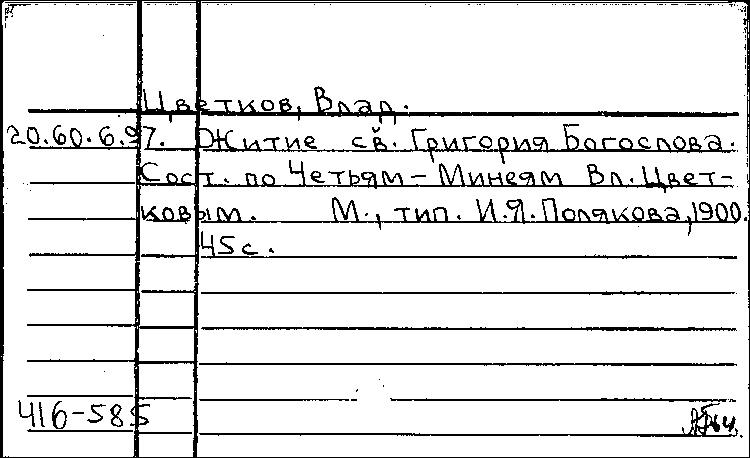 Цветков, Влад.
20.60.6.97. Житие св. Григория Богослова.
Сост. по Четьям-Минеям Вл. Цвет-
ковым. М., тип. И.Я. Полякова, 1900.
45 с.
416-585